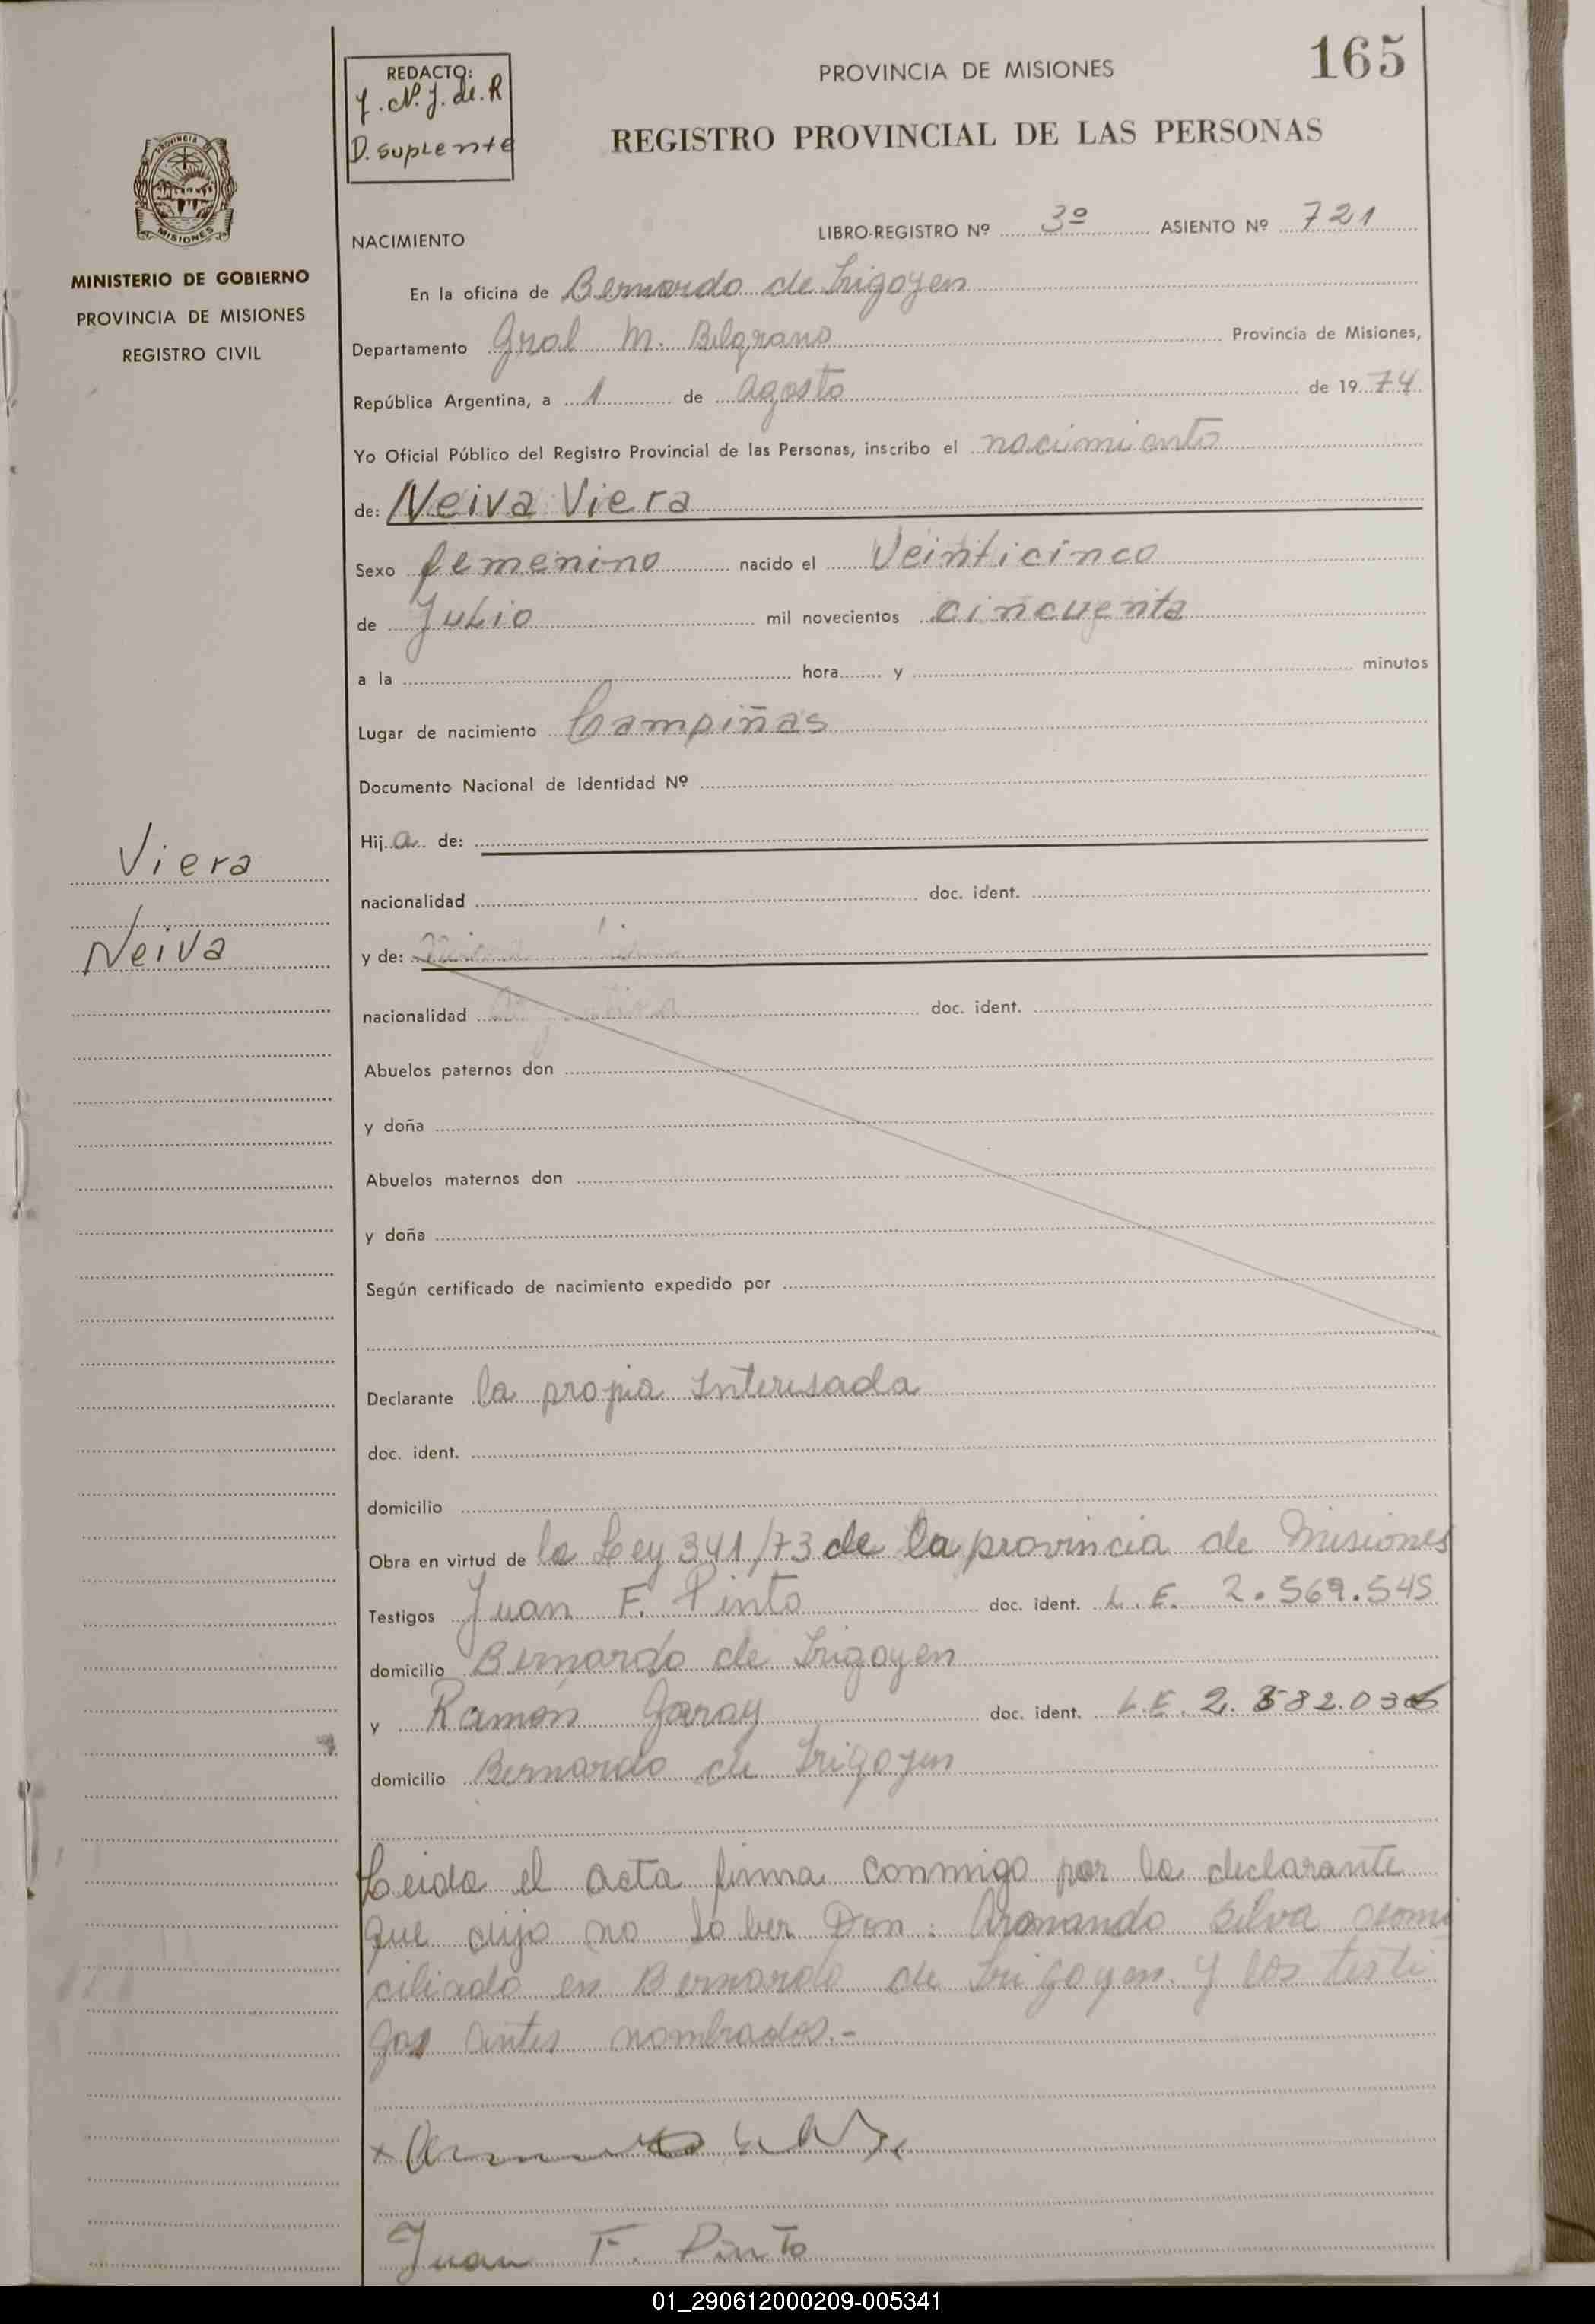 165
REDACTO:
D. suplente
PROVINCIA DE MISIONES
REGISTRO PROVINCIAL DE LAS PERSONAS
MISIONES
MINISTERIO DE GOBIERNO
PROVINCIA DE MISIONES
REGISTRO CIVIL
NACIMIENTO
LIBRO-REGISTRO Nº 3º ASIENTO Nº 721
En la oficina de Bernardo de Irigoyen
Departamento Gral M. Belgrano Provincia de Misiones,
República Argentina, a 1 de agosto de 1974
Yo Oficial Público del Registro Provincial de las Personas, inscribo el nacimiento
de: Neiva Viera
Sexo femenino nacido el Veinticinco
de Julio mil novecientos cincuenta
a la hora y minutos
Lugar de nacimiento Campiñas
Documento Nacional de Identidad Nº
Viera
Neiva
Hija de:
nacionalidad doc. ident.
y de:
nacionalidad doc. ident.
Abuelos paternos don
y doña
Abuelos maternos don
y doña
Según certificado de nacimiento expedido por
Declarante la propia Interesada
doc. ident.
domicilio
Obra en virtud de la Ley 341/73 de la provincia de Misiones
Testigos Juan F. Pinto doc. ident. L.E. 2.569.545
domicilio Bernardo de Irigoyen
y Ramón Garay doc. ident. L.E.
domicilio Bernardo de Irigoyen
Leida el acta firma conmigo por la declarante
que dijo no saber Don: Armando Silva domi
ciliado en Bernardo de Irigoyen y los testi
gos antes nombrados.-
Juan F. Pinto
01_290612000209-005341